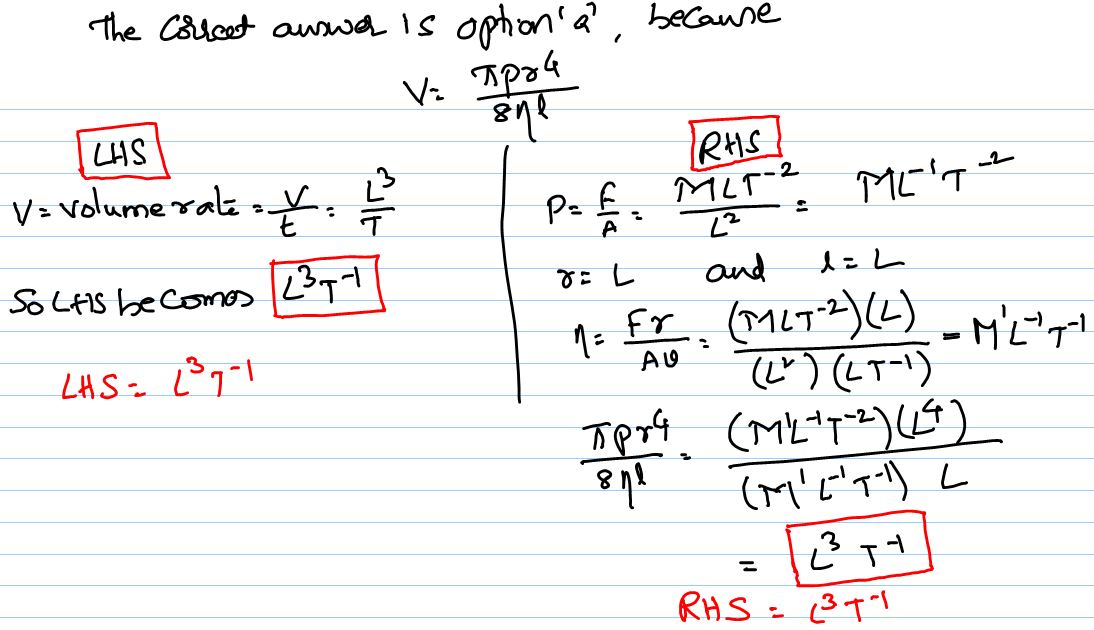 The correct answer is option 'a', because
V = πpr⁴ / 8ηl
LHS
V = Volume rate = V/t = L³/T
So LHS becomes L³T⁻¹
LHS = L³T⁻¹
RHS
P = F/A = MLT⁻²/L² = ML⁻¹T⁻²
r = L and l = L
η = Fr/Aυ = (MLT⁻²)(L) / (L²)(LT⁻¹) = M¹L⁻¹T⁻¹
πpr⁴/8ηl = (M¹L⁻¹T⁻²)(L⁴) / (M¹L⁻¹T⁻¹) L
= L³ T⁻¹
RHS = L³T⁻¹